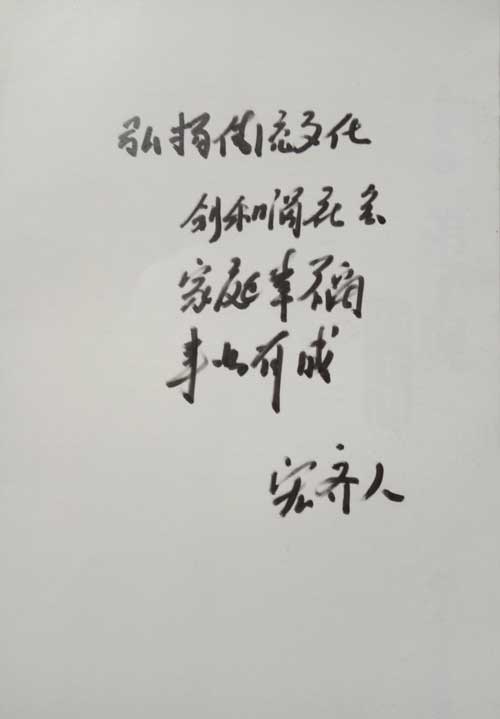 弘扬传流文化
创和谐社会
家庭幸福
事业有成
宏齐人